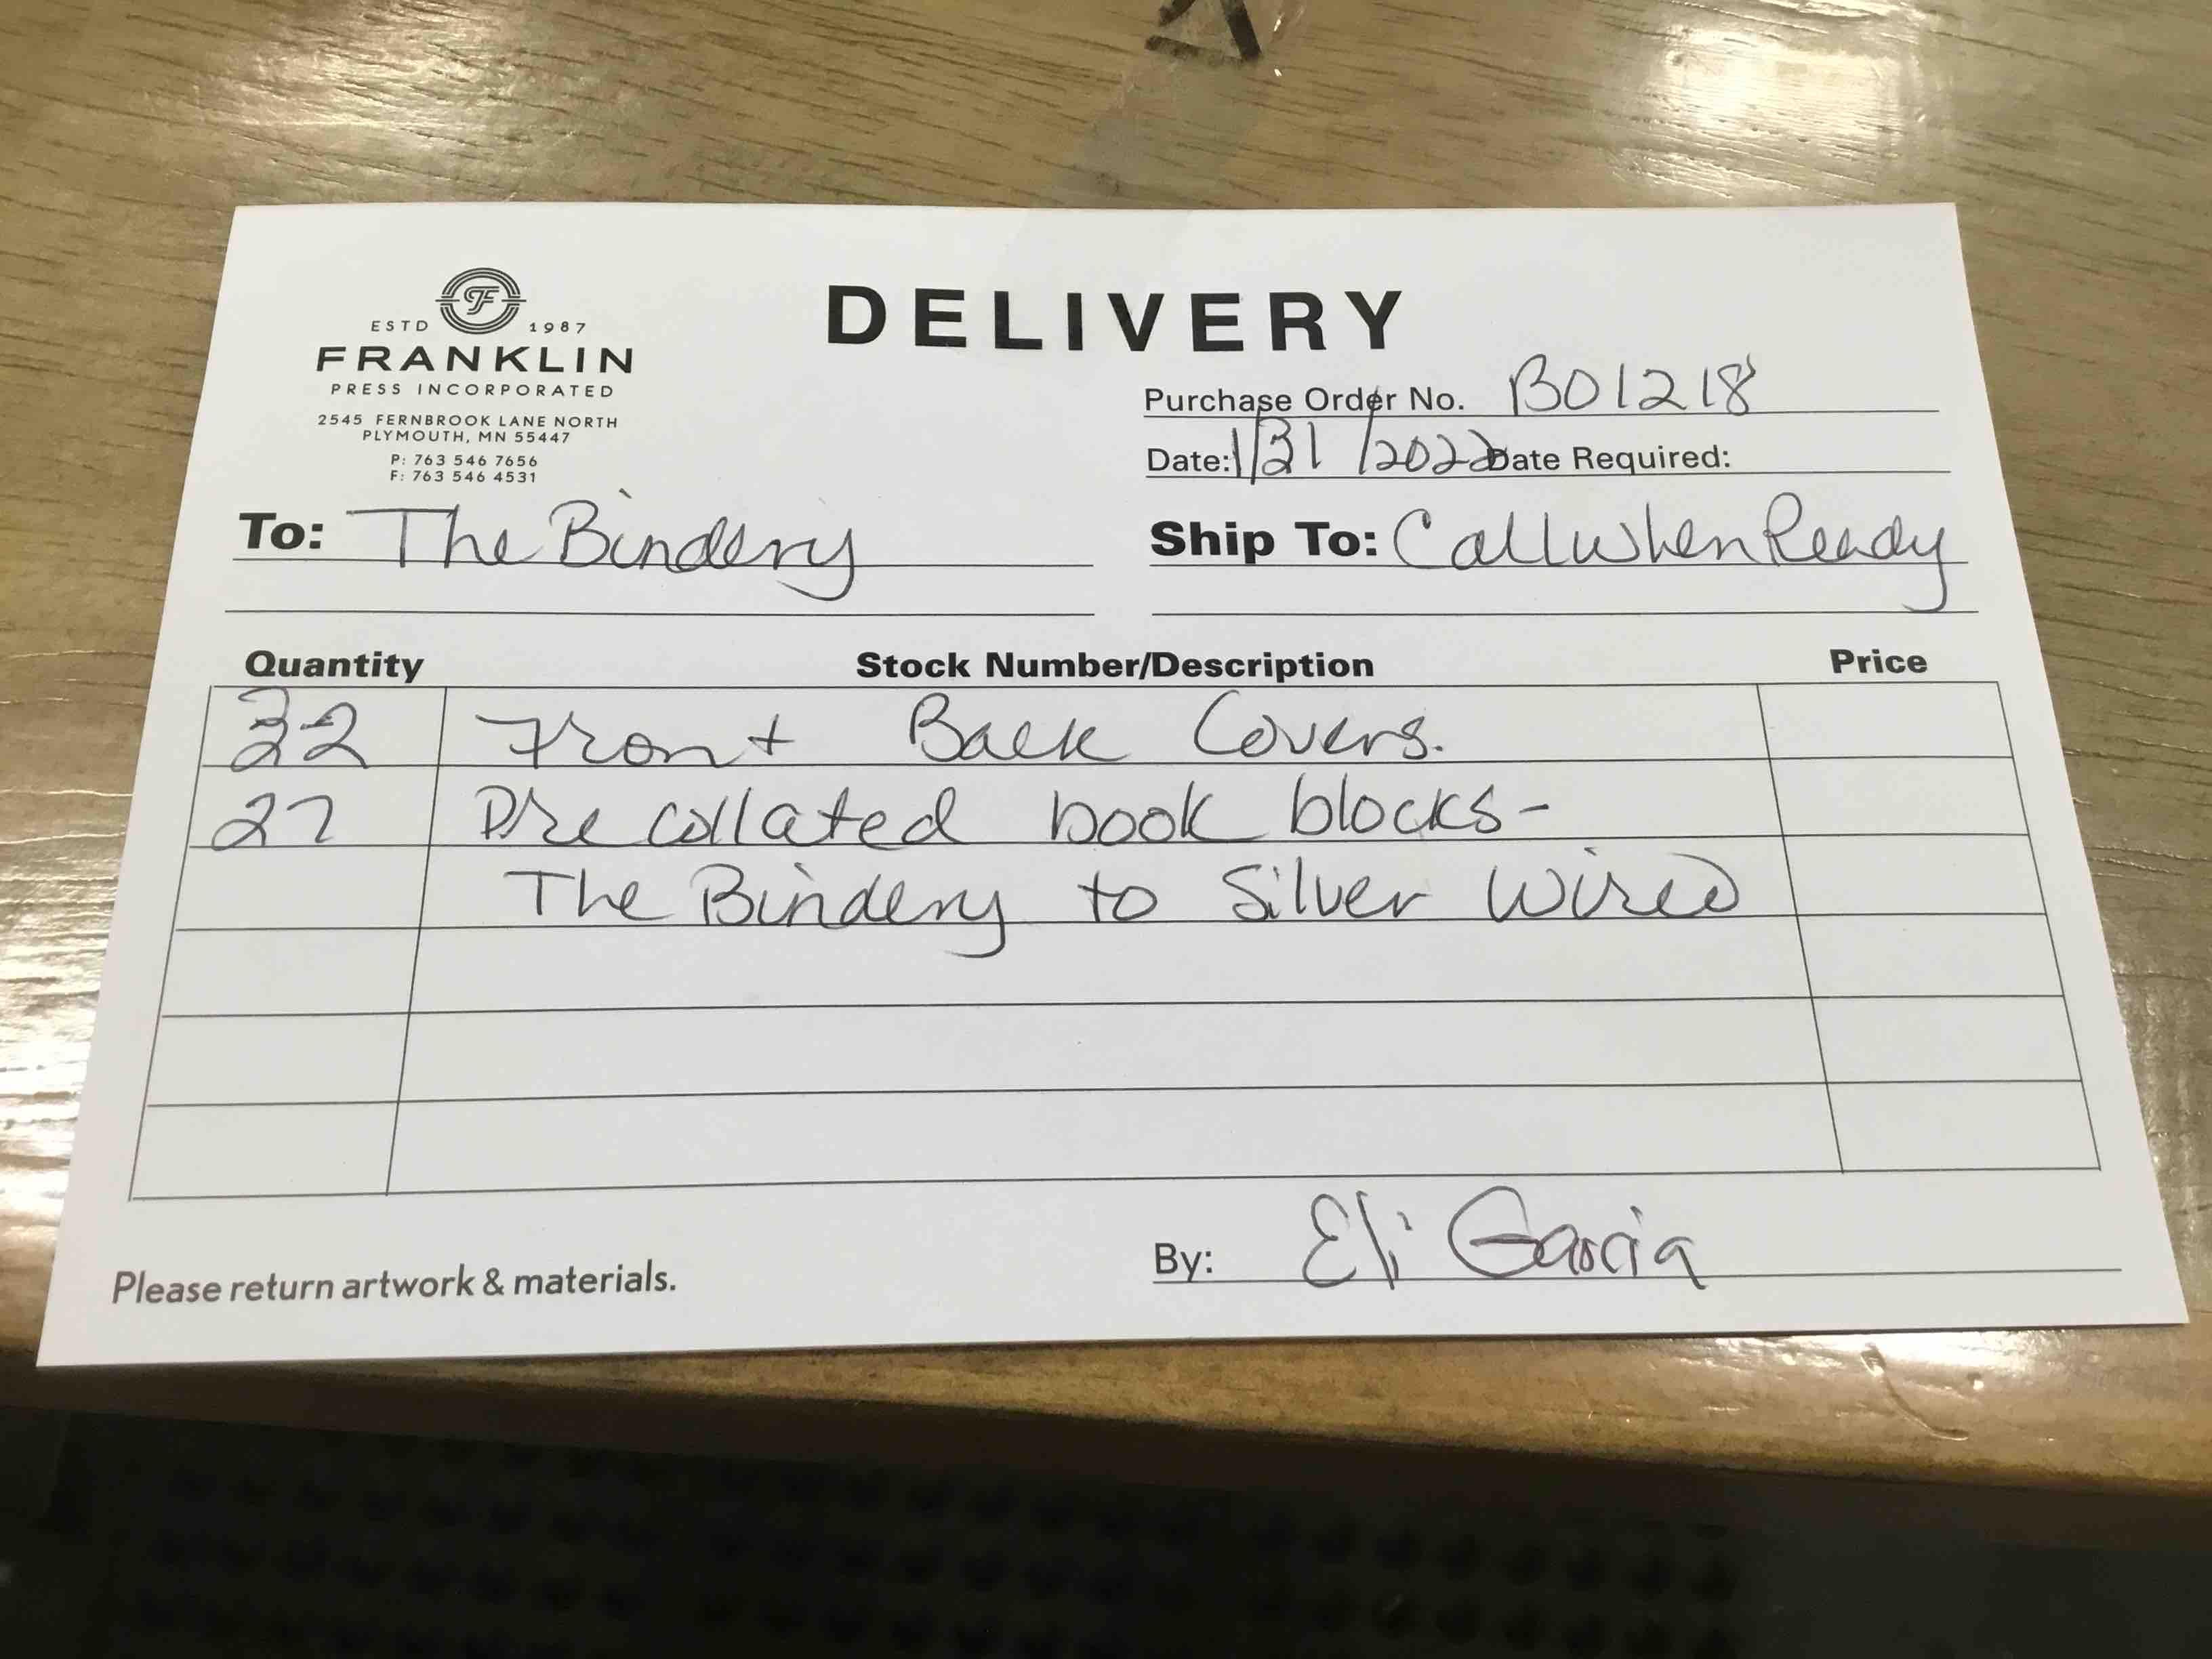 ESTD 1987
FRANKLIN
PRESS INCORPORATED
2545 FERNBROOK LANE NORTH
PLYMOUTH, MN 55447
P: 763 546 7656
F: 763 546 4531
DELIVERY
Purchase Order No. B01218
Date: 1/31/2022 Date Required:
To: The Bindery
Ship To: Call when Ready
Quantity Stock Number/Description Price
Front Back Covers.
Precollated book blocks-
The Bindery to Silver Wireo
Please return artwork & materials.
By: Eli Garcia